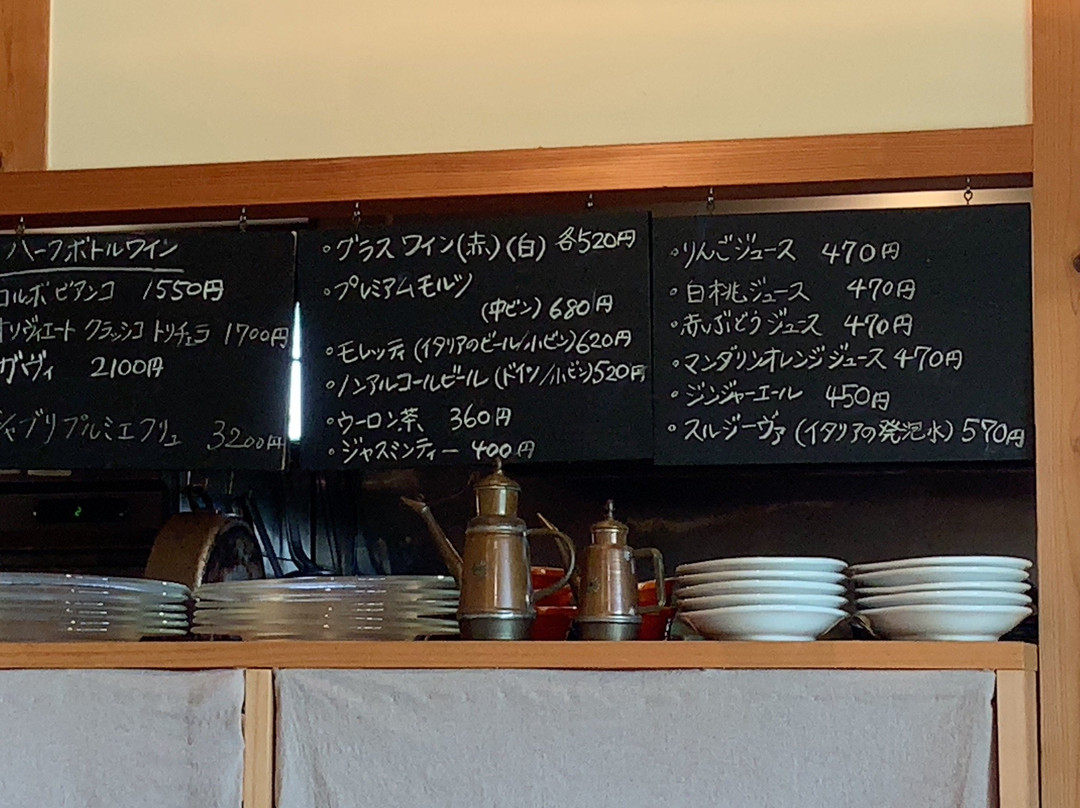 ハーフボトルワイン
コルボ ビアンコ 1550円
オリヴィエート クラッシコ トリチェラ 1700円
ガヴィ 2100円
シャブリ プルミエ クリュ 3200円
・グラスワイン(赤)(白) 各520円
・プレミアムモルツ
(中ビン) 680円
・モレッティ(イタリアのビール/小ビン)620円
・ノンアルコールビール(ドイツ/小ビン)520円
・ウーロン茶 360円
・ジャスミンティー 400円
・りんごジュース 470円
・白桃ジュース 470円
・赤ぶどうジュース 470円
・マンダリンオレンジジュース 470円
・ジンジャーエール 450円
・スルジーヴァ(イタリアの発泡水) 570円
2